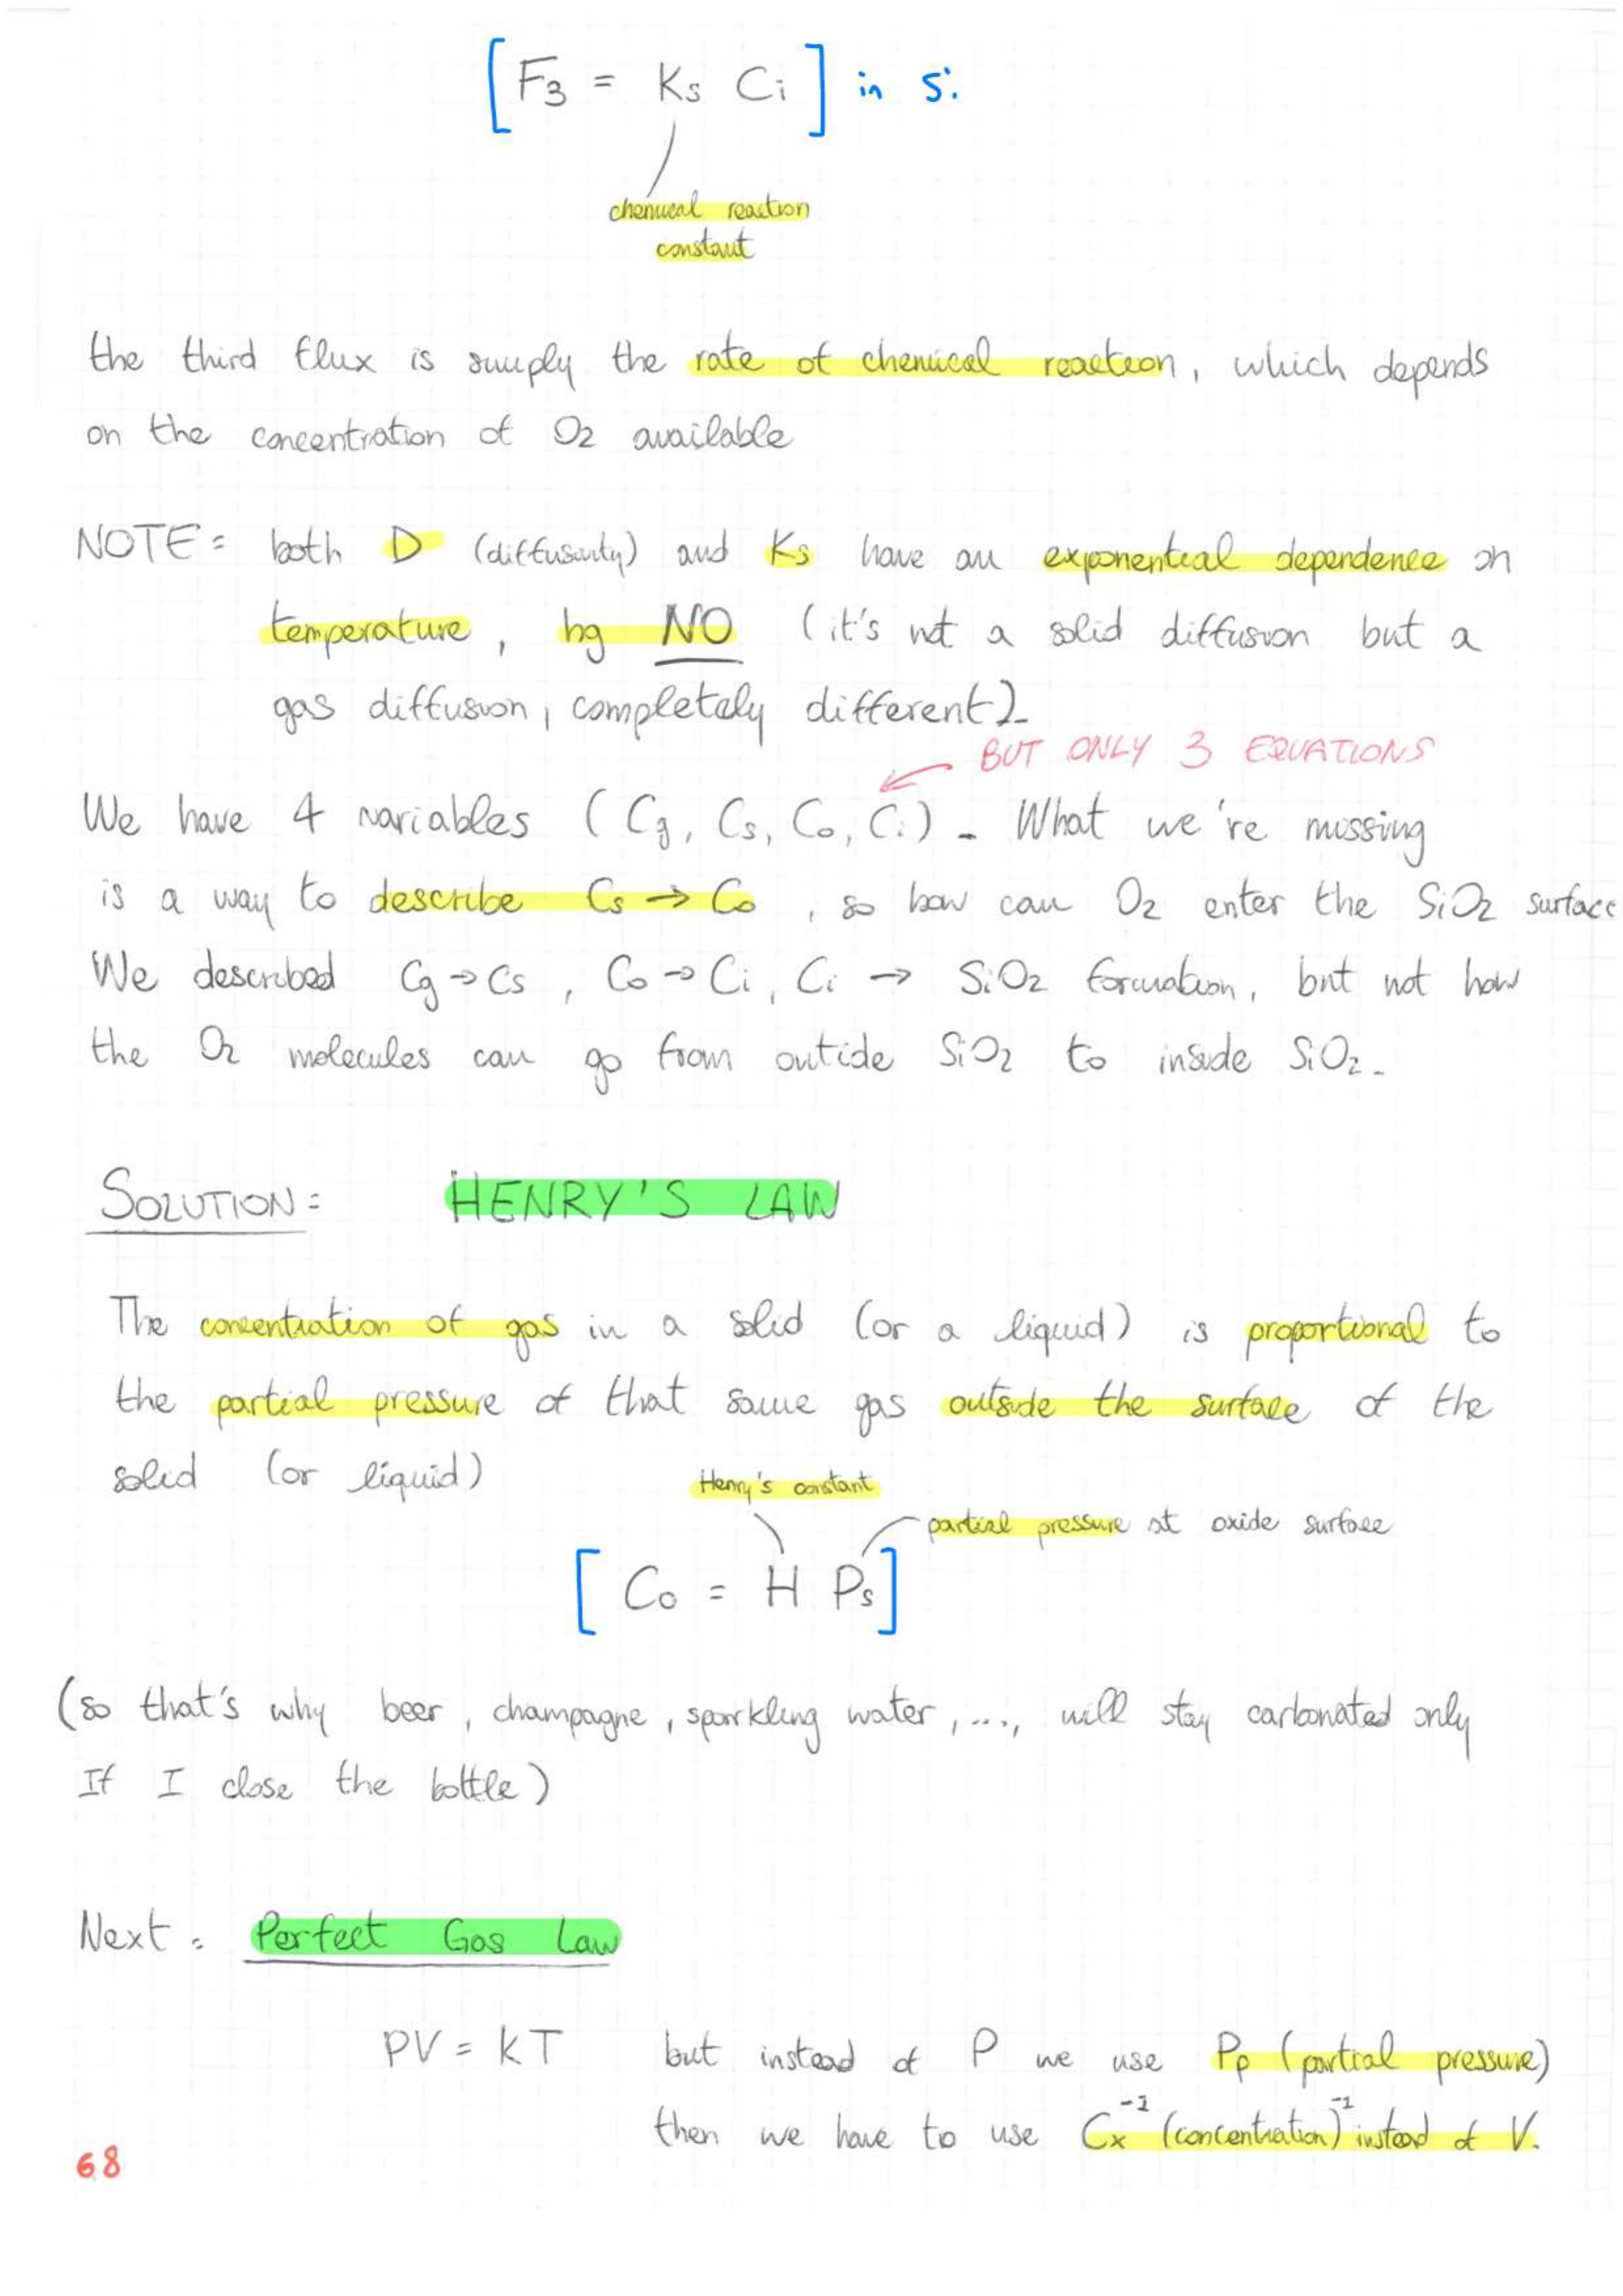 [F3 = Ks Ci] in Si
chemical reaction
constant
the third flux is simply the rate of chemical reaction, which depends
on the concentration of O2 available
NOTE: both D (diffusivity) and Ks have an exponential dependence on
temperature, hg NO (it's not a solid diffusion but a
gas diffusion, completely different).
BUT ONLY 3 EQUATIONS
We have 4 variables (Cg, Cs, Co, Ci). What we're missing
is a way to describe Cs → Co, so how can O2 enter the SiO2 surface
We described Cg → Cs, Co → Ci, Ci → SiO2 formation, but not how
the O2 molecules can go from outide SiO2 to inside SiO2.
SOLUTION: HENRY'S LAW
The concentration of gas in a solid (or a liquid) is proportional to
the partial pressure of that same gas outside the surface of the
solid (or liquid)
Henry's constant
partial pressure at oxide surface
[Co = H Ps]
(so that's why beer, champagne, sparkling water, ..., will stay carbonated only
If I close the bottle)
Next: Perfect Gas Law
PV = kT but instead of P we use Pp (partial pressure)
then we have to use Cx^-1 (concentration)^-1 instead of V.
68